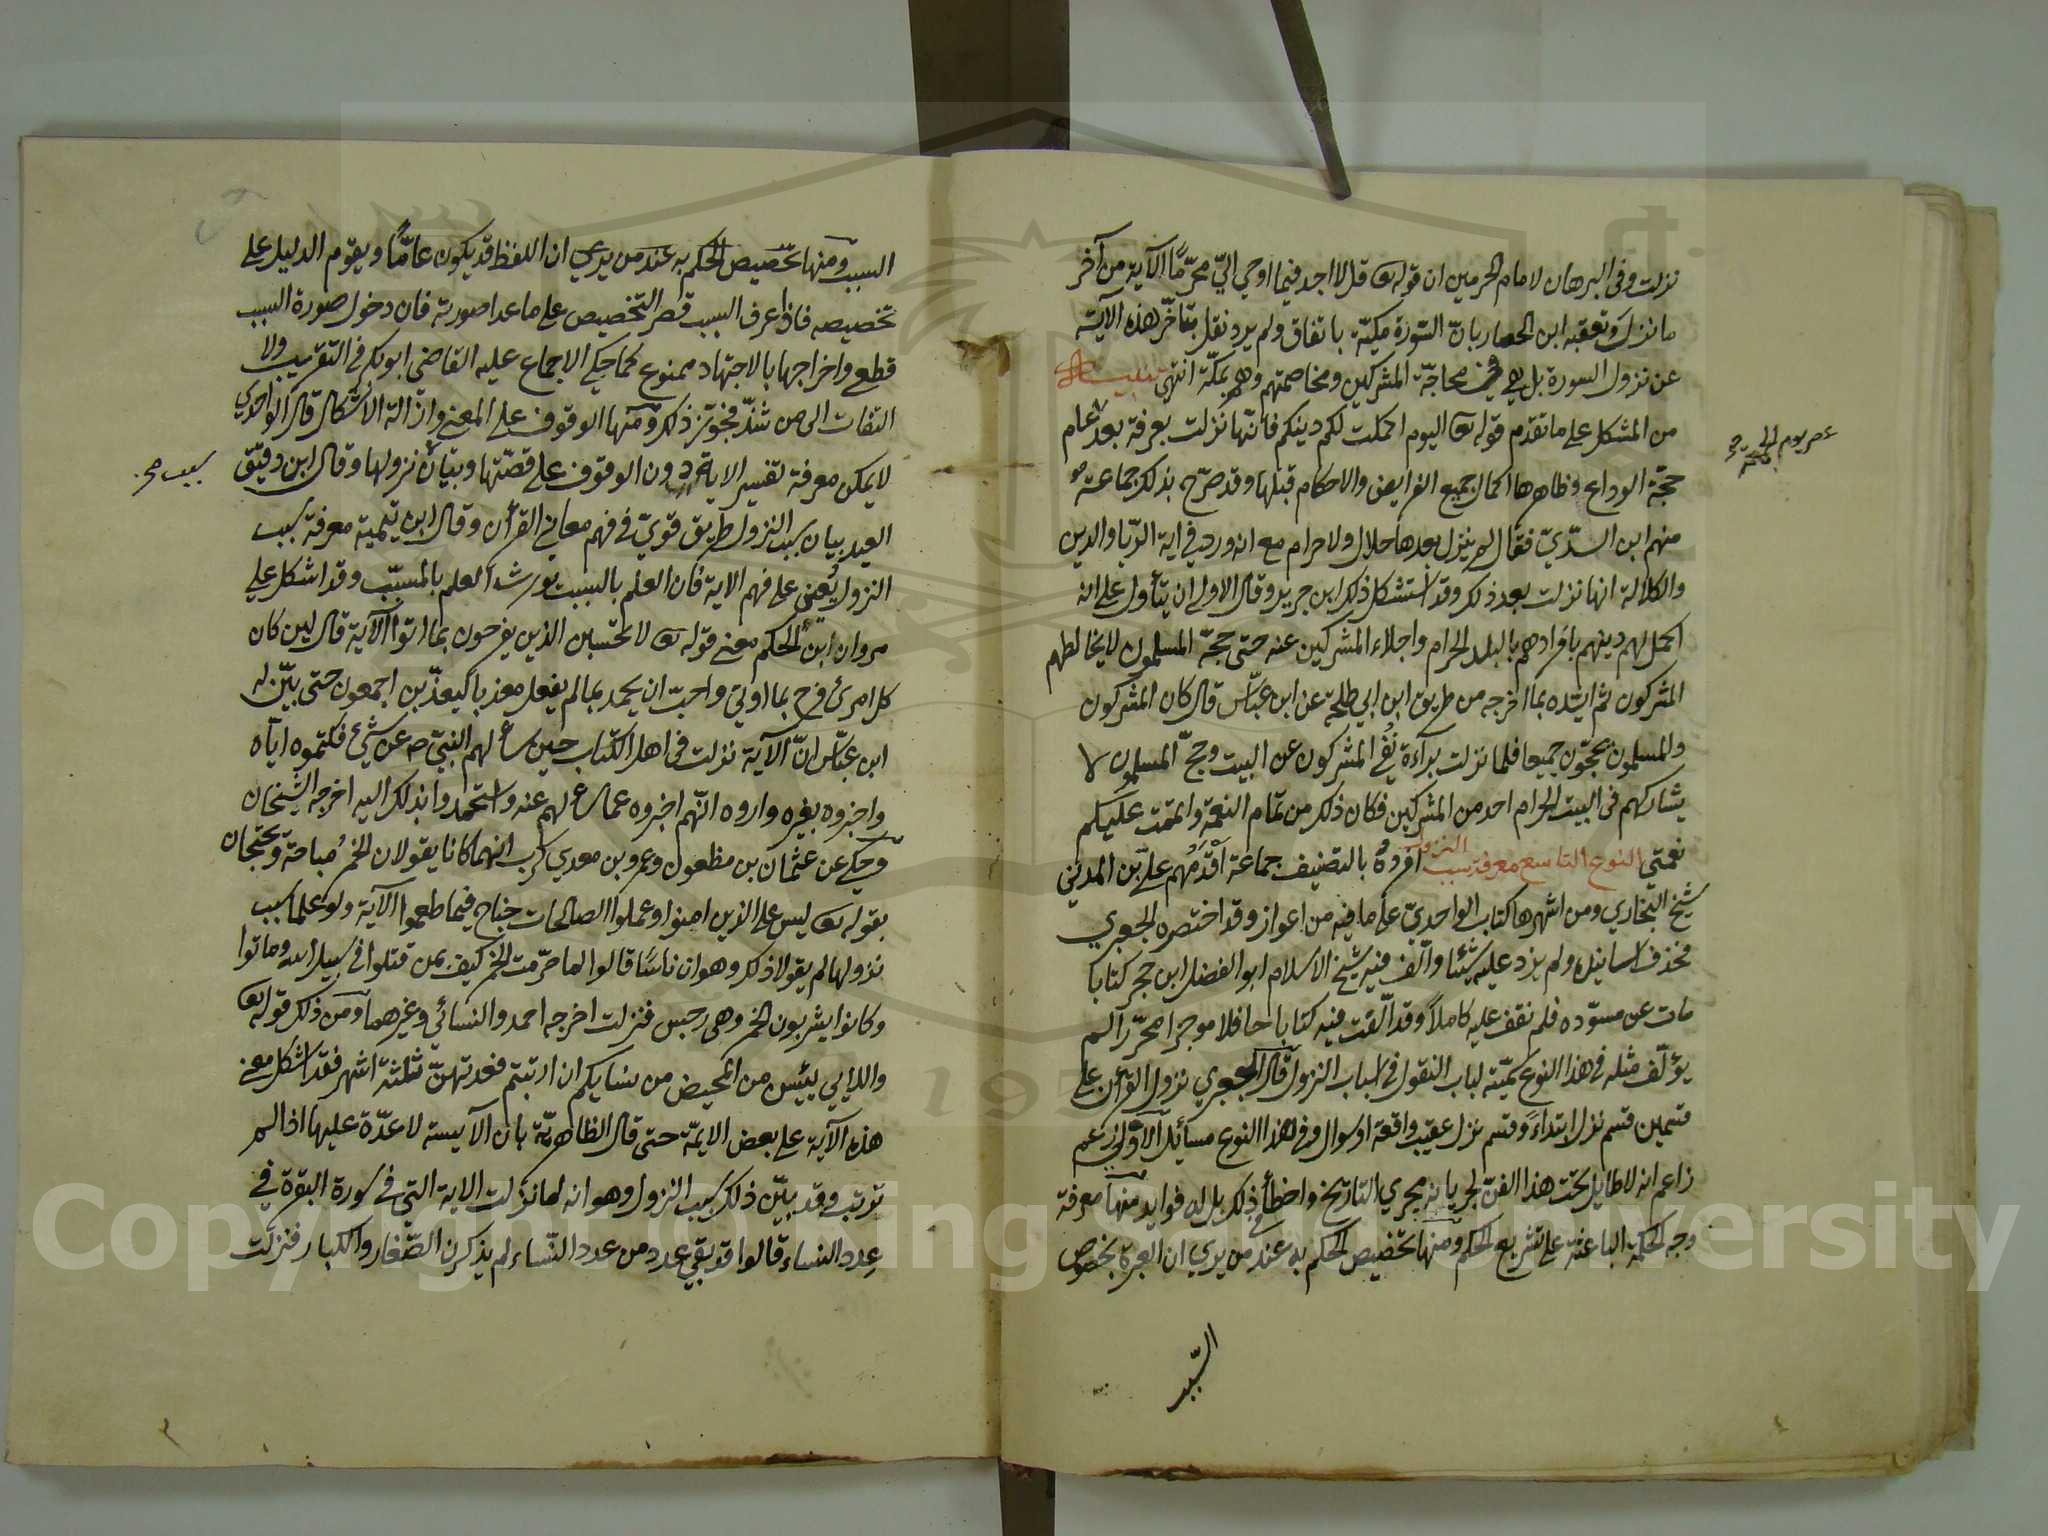 نزلت وفى البرهان لامام الحرمين ان قوله تعا قل لا اجد فيما اوحي اليّ محرّمًا الآية من آخر
ما نزل وتعقبه ابن الحصار بانّ السّورة مكيّة باتفاق ولم يرد نقل بتاخّر هذه الآيته
عن نزول السورة بل هي في محاجّة المشركين ومخاصمتهم وهم بمكّة انتهى تنبيه
من المشكل على ما تقدم قوله تعا اليوم اكملت لكم دينكم فانّها نزلت بعرفة بعد عام
حجّة الوداع وظاهرها اكمال جميع الفرايض والاحكام قبلها وقد صرّح بذلك جماعة
منهم ابن السدّيّ فقال لم ينزل بعدها حلال ولا حرام مع انه ورد في اية الرّبا والدين
والكلالة انها نزلت بعد ذلك وقد استشكل ذلك ابن جرير وقال الاولى ان يتأول على انه
اكمل لهم دينهم بافرادهم بالبلد الحرام واجلاء المشركين عنه حتى حجّة المسلمون لا يخالطهم
المشركون ثم ايّده بما اخرجه من طريق ابن ابي طلحة عن ابن عبّاس قال كان المشركون
والمسلمون يحجّون جميعا فلما نزلت براءة نُفي المشركون عن البيت وحجّ المسلمون لا
يشاركهم فى البيت الحرام احد من المشركين فكان ذلك من تمام النعمة واتممت عليكم
نعمتى النوع التاسع معرفة سبب النزول افرده بالتصنيف جماعة اقدمهم علي بن المديني
شيخ البخاري ومن اشهرها كتاب الواحديّ على ما فيه من اعواز وقد اختصره الجعبري
فحذف اسانيده ولم يزد عليه شيئا والّف فيه شيخ الاسلام ابو الفضل ابن حجر كتابا
مات عن مسوّده فلم نقف عليه كاملاً وقد الّفت فيه كتابا حافلا موجزا محرّرا لم
يؤلّف مثله في هذا النوع سمّيته لباب النقول في اسباب النزول قال الجعبري نزول القرآن على
قسمين قسم نزل ابتداءً وقسم نزل عقيب واقعة او سوال وفي هذا النوع مسائل الاولى زعم
زاعم انه لا طايل تحت هذا الفنّ لجريانه مجري التاريخ واخطأ في ذلك بل له فوايد منها معرفة
وجه الحكمة الباعثة على تشريع الحكم ومنها تخصيص الحكم به عند من يري ان العبرة بخصوص
السّبب
السبب ومنها تخصيص الحكم به عند من يري ان اللفظ قد يكون عامًّا ويقوم الدليل على
تخصيصه فاذا عرف السبب قصر التخصيص على ما عدا صورته فان دخول صورة السبب
قطعي واخراجها بالاجتهاد ممنوع كما حكي الاجماع عليه القاضي ابو بكر في التقريب ولا
التفات الى من شذّ فجوّز ذلك ومنها الوقوف على المعنى وازالة الاشكال قال الواحدي
لا يمكن معرفة تفسير الاية دون الوقوف على قصّتها وبيان نزولها وقال ابن دقيق
سبب صح
العيد بيان سبب النزول طريق قويّ في فهم معاني القرآن وقال ابن تيمية معرفة سبب
النزول يُعين على فهم الاية فان العلم بالسبب يورث العلم بالمسبّب وقد اشكل علي
مروان ابن الحكم معنى قوله تعا لا تحسبن الذين يفرحون بما اتوا الآية قال لين كان
كل امرئ فرح بما اوتي واحبّ ان يحمد بما لم يفعل معذبا لنعذّبن اجمعون حتى بيّن له
ابن عبّاس انّ الآية نزلت فى اهل الكتاب حين سألهم النبيّ ص عن شئ فكتموه اياه
واخبروه بغيره واروه انّهم اخبروه عما سألهم عنه واستحمدوا بذلك اليه اخرجه الشيخان
وحكي عن عثمان بن مظعون وعمرو بن معدي كرب انهما كانا يقولان الخمر مُباحة ويحتجان
بقوله تعا ليس على الذين امنوا وعملوا الصالحات جناح فيما طعموا الآية ولو علما سبب
نزولها لم يقولا ذلك وهو ان ناسًا قالوا لما حرّمت الخمر كيف بمن قتلوا في سبيل الله وماتوا
وكانوا يشربون الخمر وهى رجس فنزلت اخرجه احمد والنسائي وغيرهما ومن ذلك قوله تعا
واللايي يئسن من المحيض من نسايكم ان ارتبتم فعدتهنّ ثلثة اشهر فقد اشكل معنى
هذه الآية على بعض الايمّة حتى قال الظاهريّة بان الآيسة لا عدّة عليها اذا لم
ترتب وقد بيّن ذلك سبب النزول وهو انه لما نزلت الاية التي في سورة البقرة في
عِدد النساء قالوا قد بقي عدد من عدد النّساء لم يذكرن الصّغار والكبار فنزلت
Copyright © King Saud University